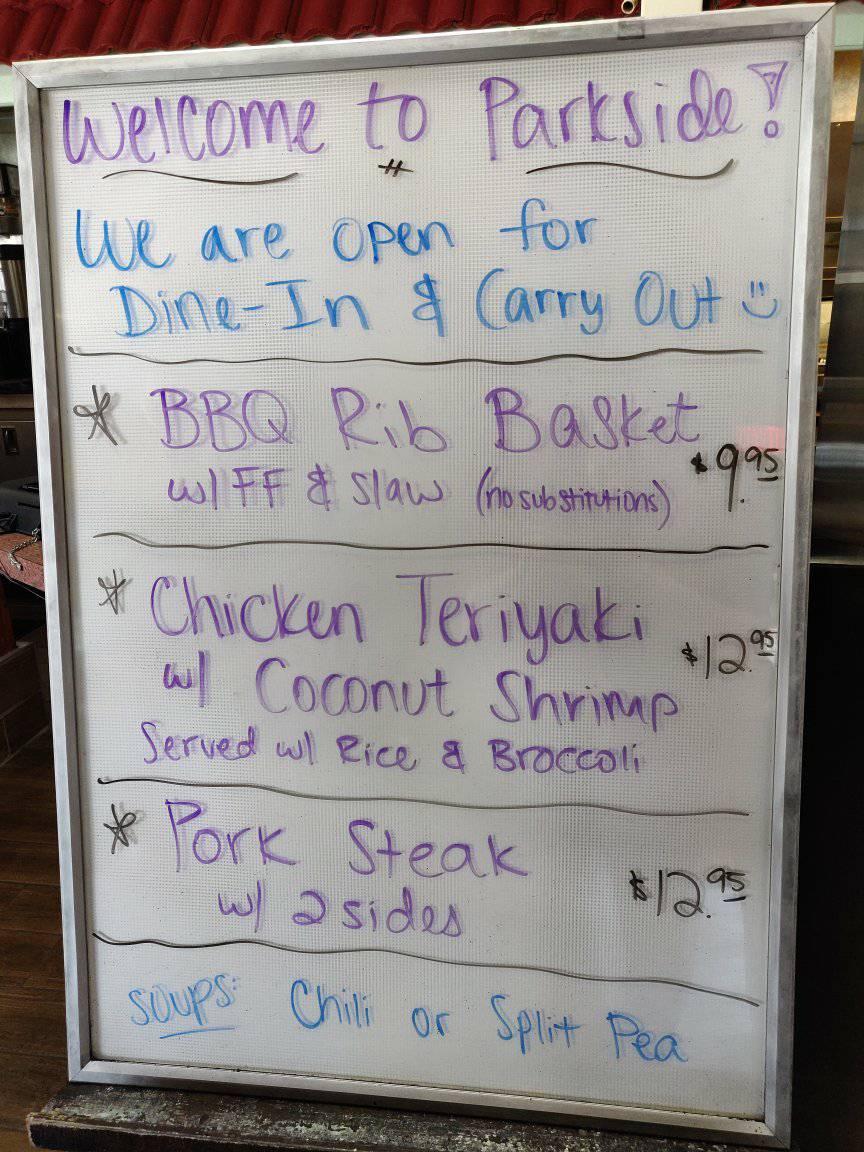 Welcome to Parkside!
We are open for
Dine-In & Carry Out
* BBQ Rib Basket
w/ FF & Slaw (no substitutions) $9.95
* Chicken Teriyaki
w/ Coconut Shrimp $12.95
Served w/ Rice & Broccoli
* Pork Steak
w/ 2 sides $12.95
Soups: Chili or Split Pea